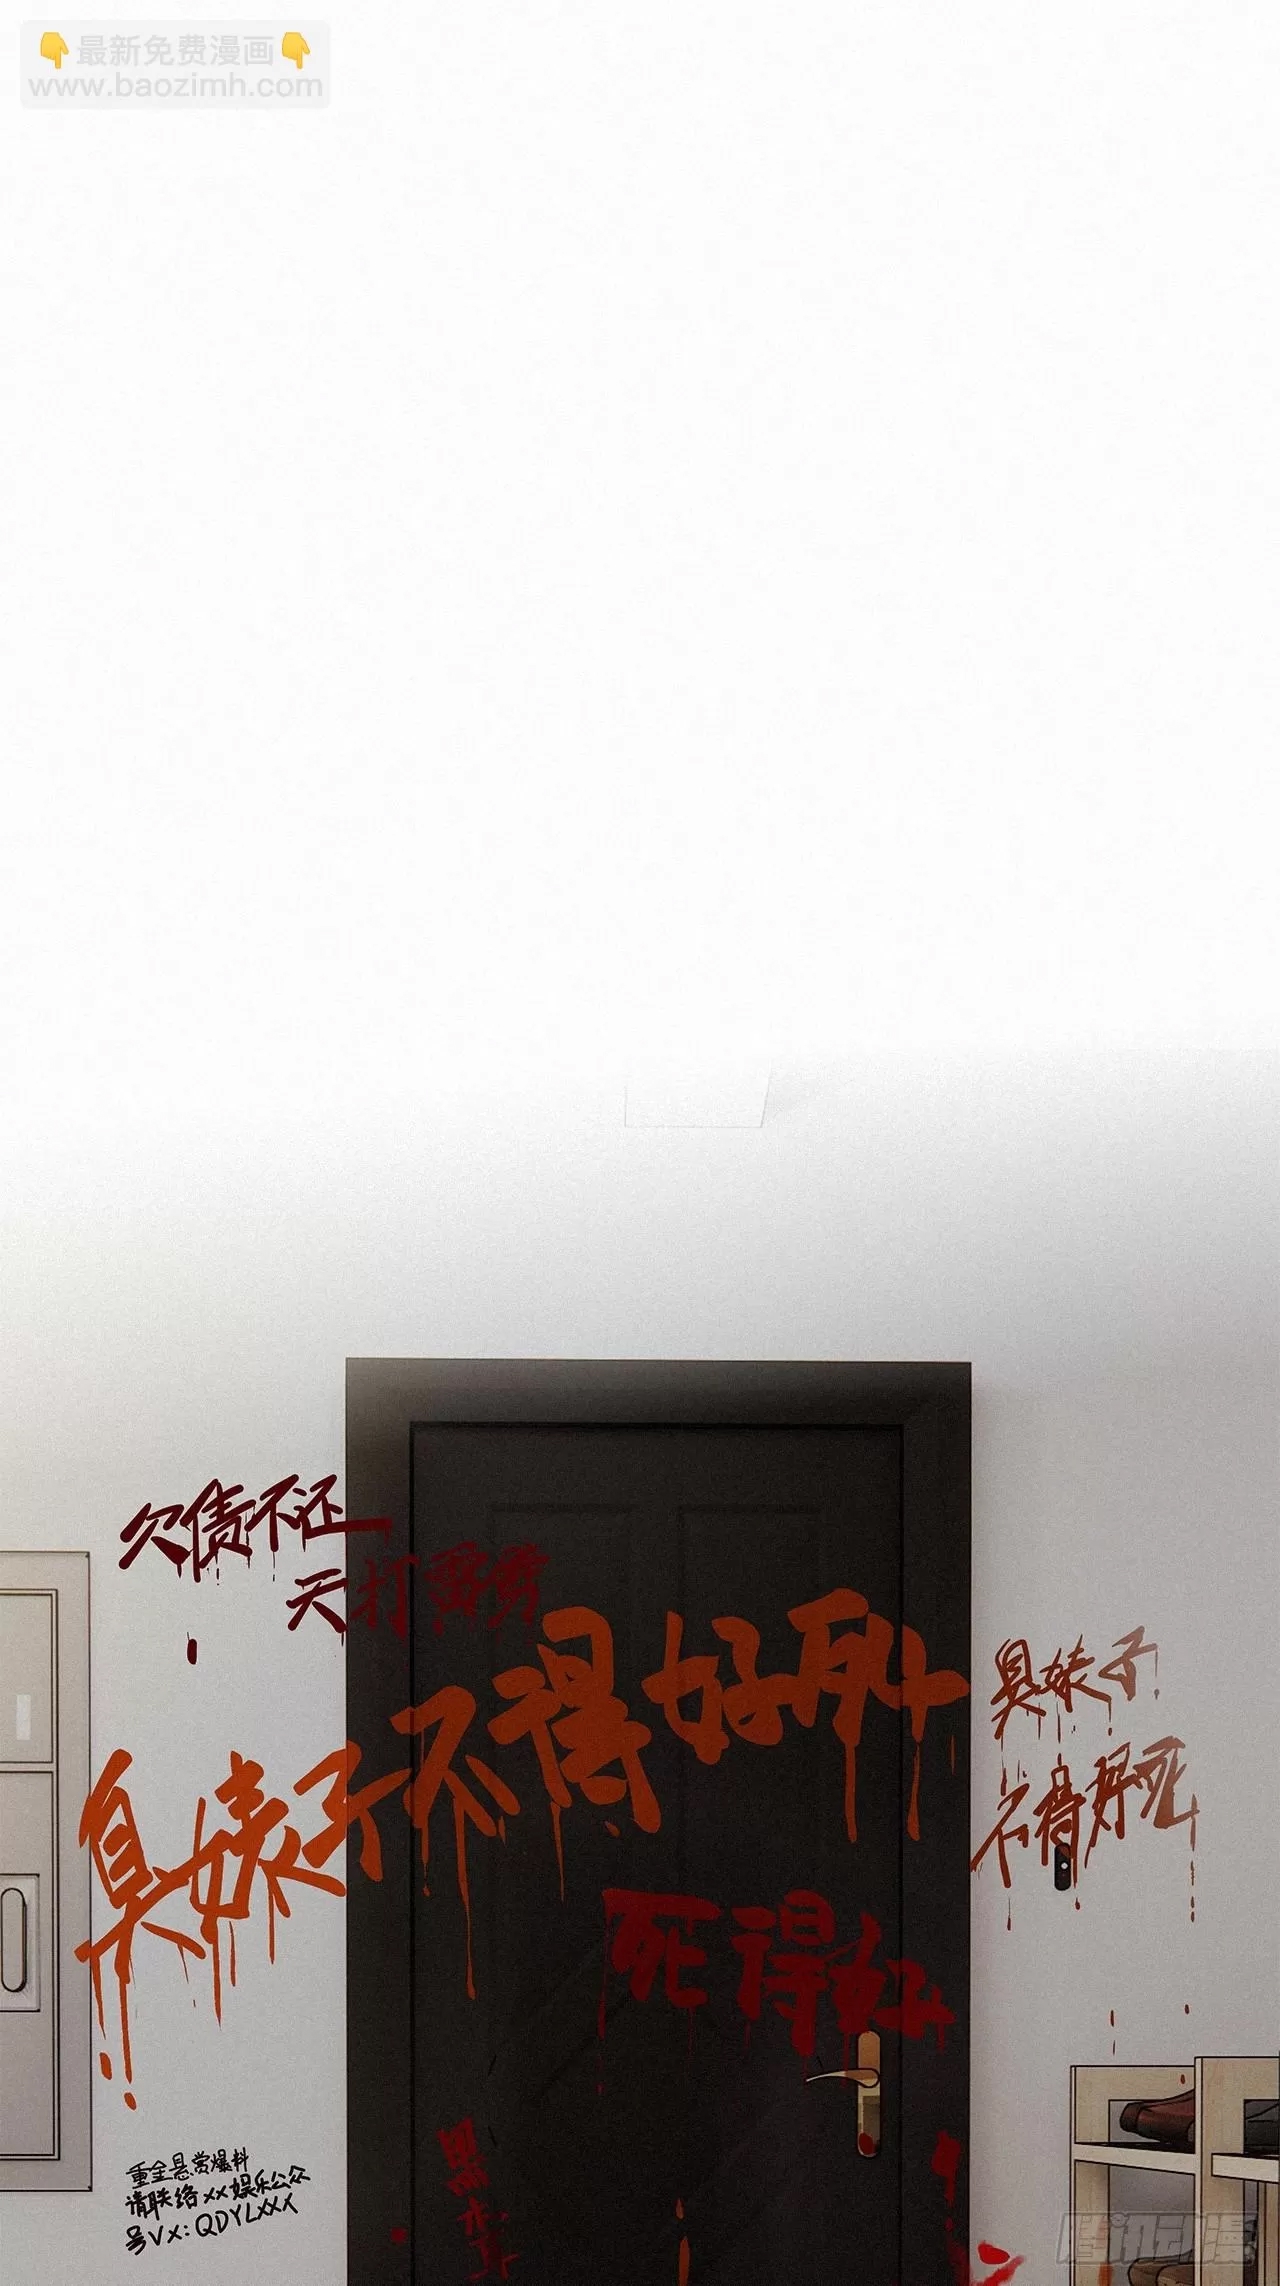 👇最新免费漫画👇
www.baozimh.com
欠债不还
天打雷劈
臭婊子不得好死
臭婊子
不得好死
死得好
黑木耳
重金悬赏爆料
请联络xx娱乐公众
号VX:QDYLXXX
腾讯动漫